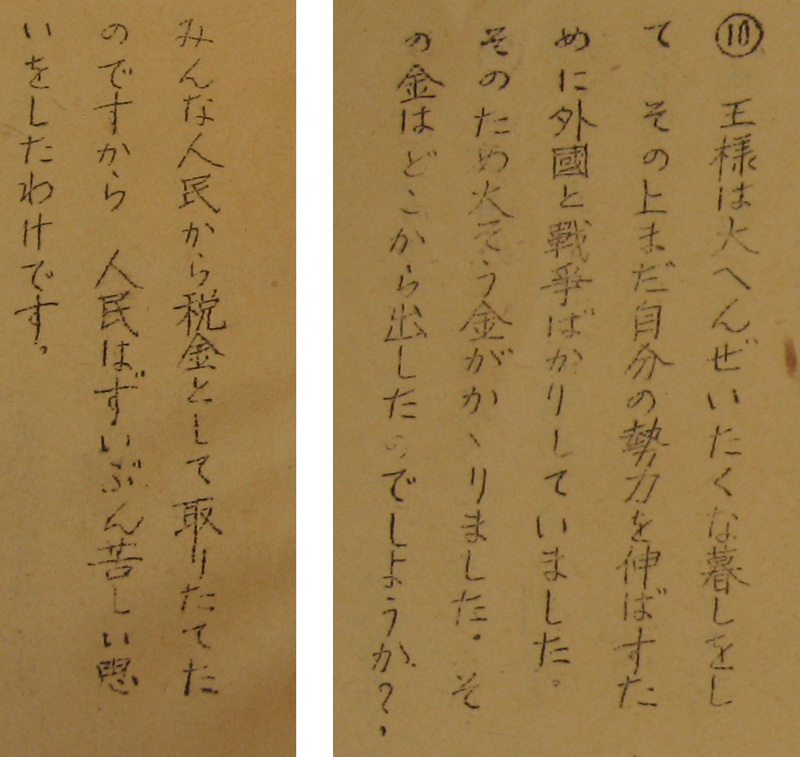 ⑩ 王様は大へんぜいたくな暮しをし
て その上まだ自分の勢力を伸ばすた
めに外國と戰爭ばかりしていました。
そのため大そう金がかゝりました。そ
の金はどこから出したのでしようか?.
みんな人民から税金として取りたてた
のですから 人民はずいぶん苦しい思
いをしたわけです。